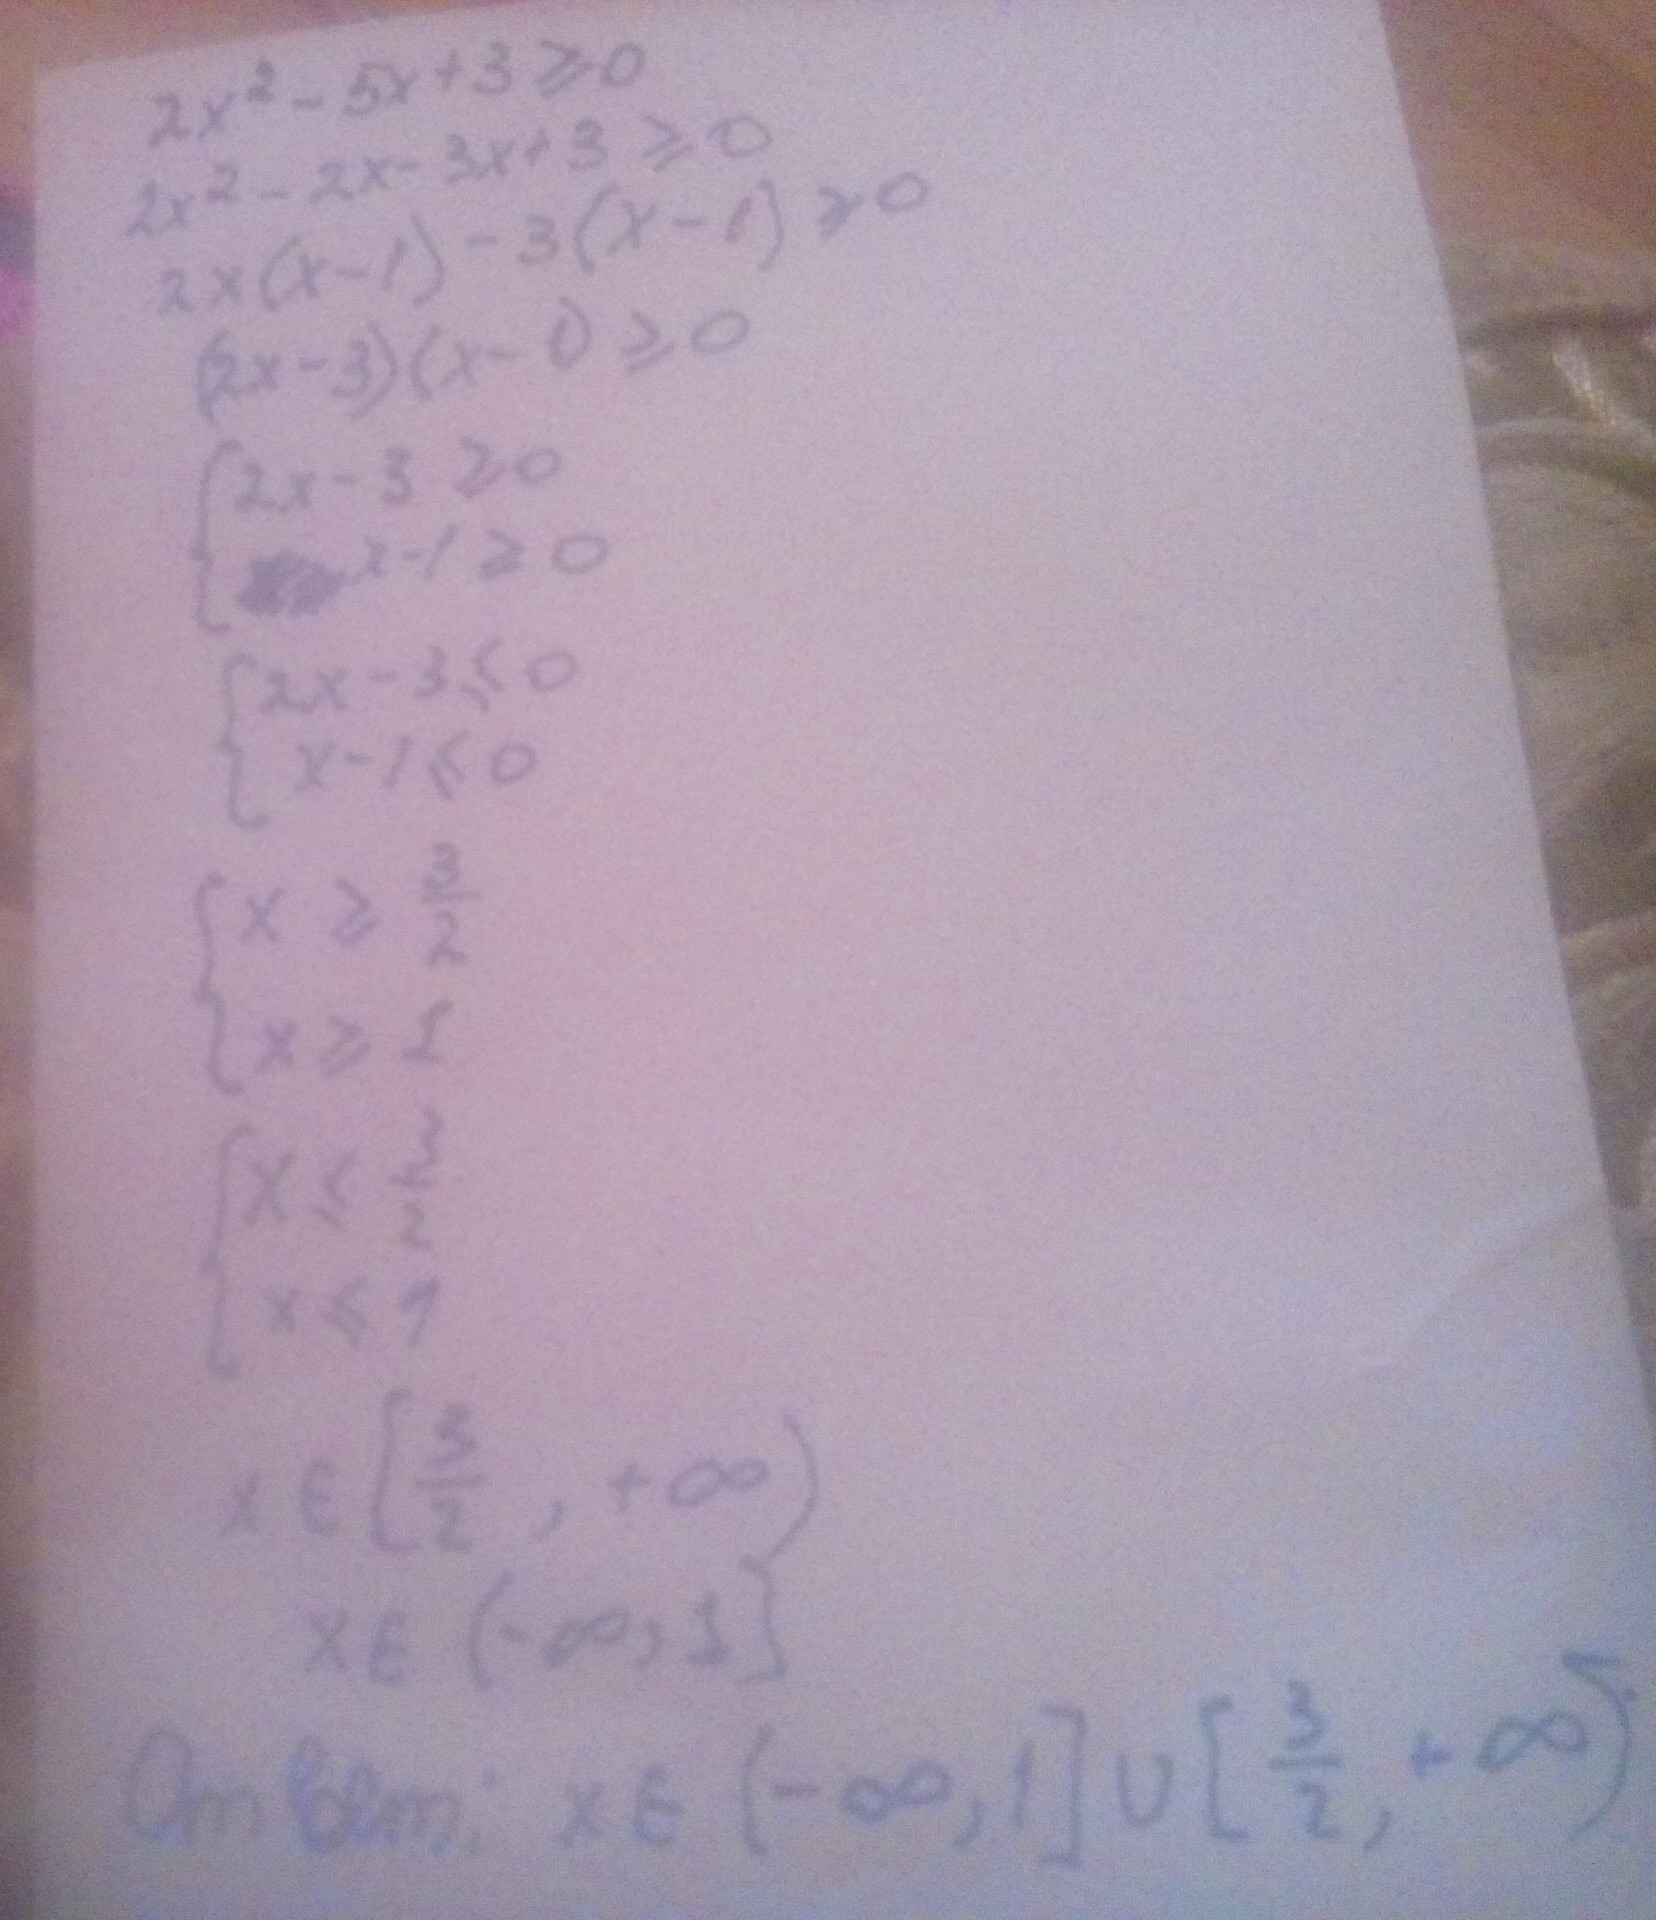 2x² - 5x + 3 ⩾ 0
2x² - 2x - 3x + 3 ⩾ 0
2x(x-1) - 3(x-1) ⩾ 0
(2x-3)(x-1) ⩾ 0
{ 2x - 3 ⩾ 0
x - 1 ⩾ 0
{ 2x - 3 ⩽ 0
x - 1 ⩽ 0
{ x ⩾ 3/2
x ⩾ 1
{ x ⩽ 3/2
x ⩽ 1
x ∈ [3/2, +∞)
x ∈ (-∞, 1]
Ответ: x ∈ (-∞, 1] ∪ [3/2, +∞)